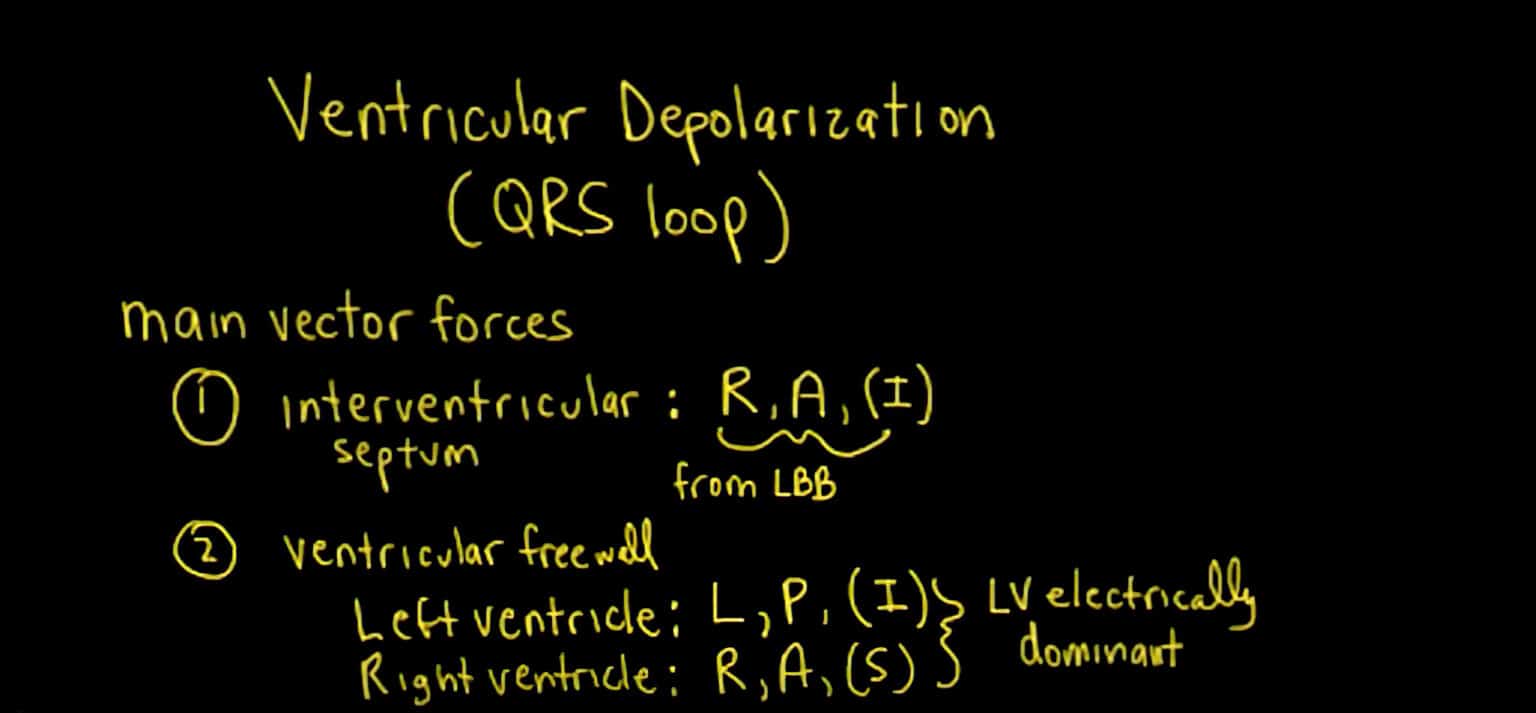 Ventricular Depolarization
(QRS loop)
main vector forces
① interventricular : R, A, (I)
septum
from LBB
② ventricular free wall
Left ventricle: L, P, (I) } LV electrically
dominant
Right ventricle: R, A, (S)